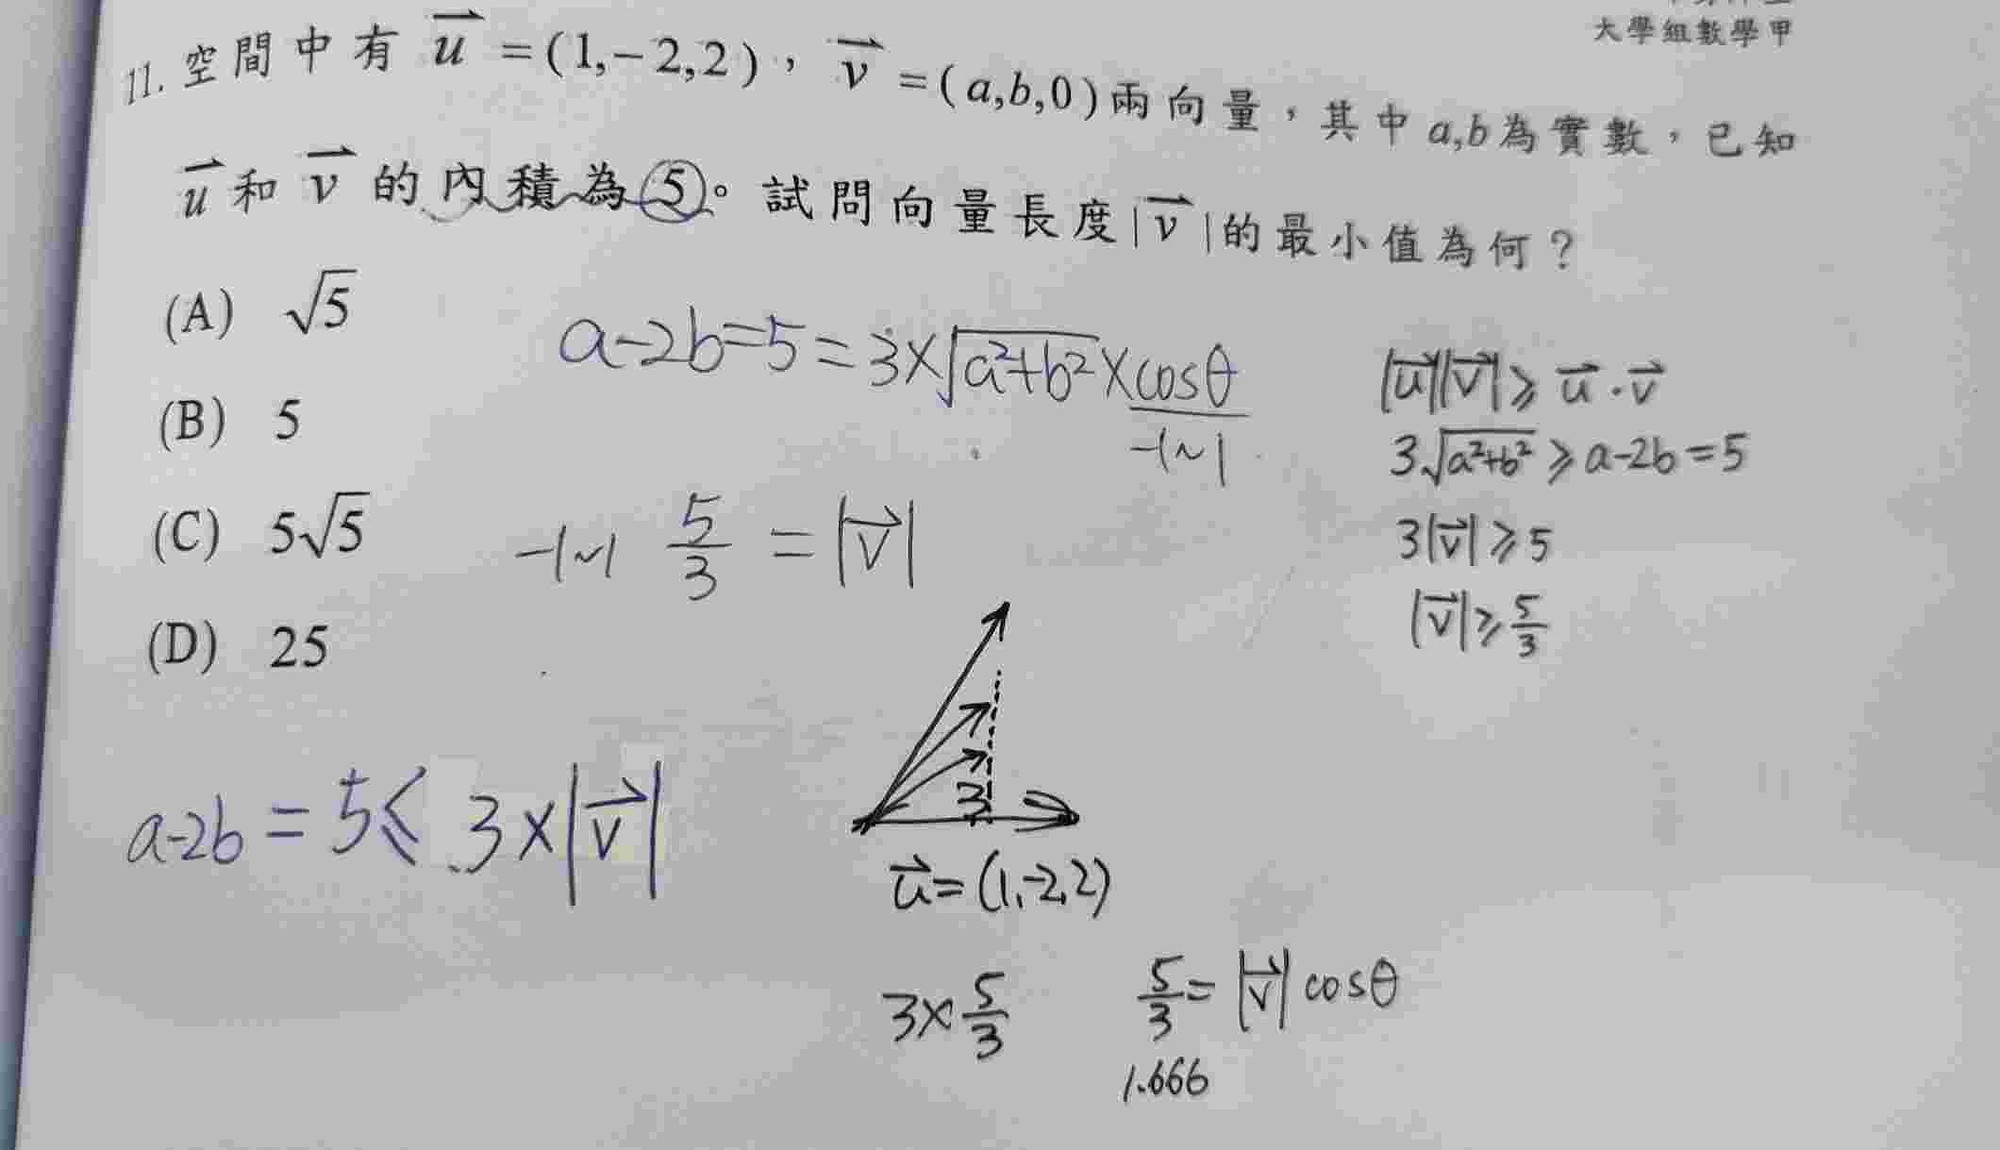 大學組數學甲
11. 空間中有 \vec{u} =(1,-2,2)，\vec{v} =(a,b,0)兩向量，其中a,b為實數，已知
\vec{u}和\vec{v}的內積為5。試問向量長度|\vec{v}|的最小值為何？
(A) √5
(B) 5
(C) 5√5
(D) 25
a-2b=5=3×√(a²+b²)×cosθ
-1~1
-1~1 5/3 = |\vec{v}|
|\vec{u}||\vec{v}| ≥ \vec{u}·\vec{v}
3√(a²+b²) ≥ a-2b=5
3|\vec{v}| ≥ 5
|\vec{v}| ≥ 5/3
a-2b = 5 ≤ 3×|\vec{v}|
3
\vec{u}=(1,-2,2)
3×5/3
5/3 = |\vec{v}| cosθ
1.666